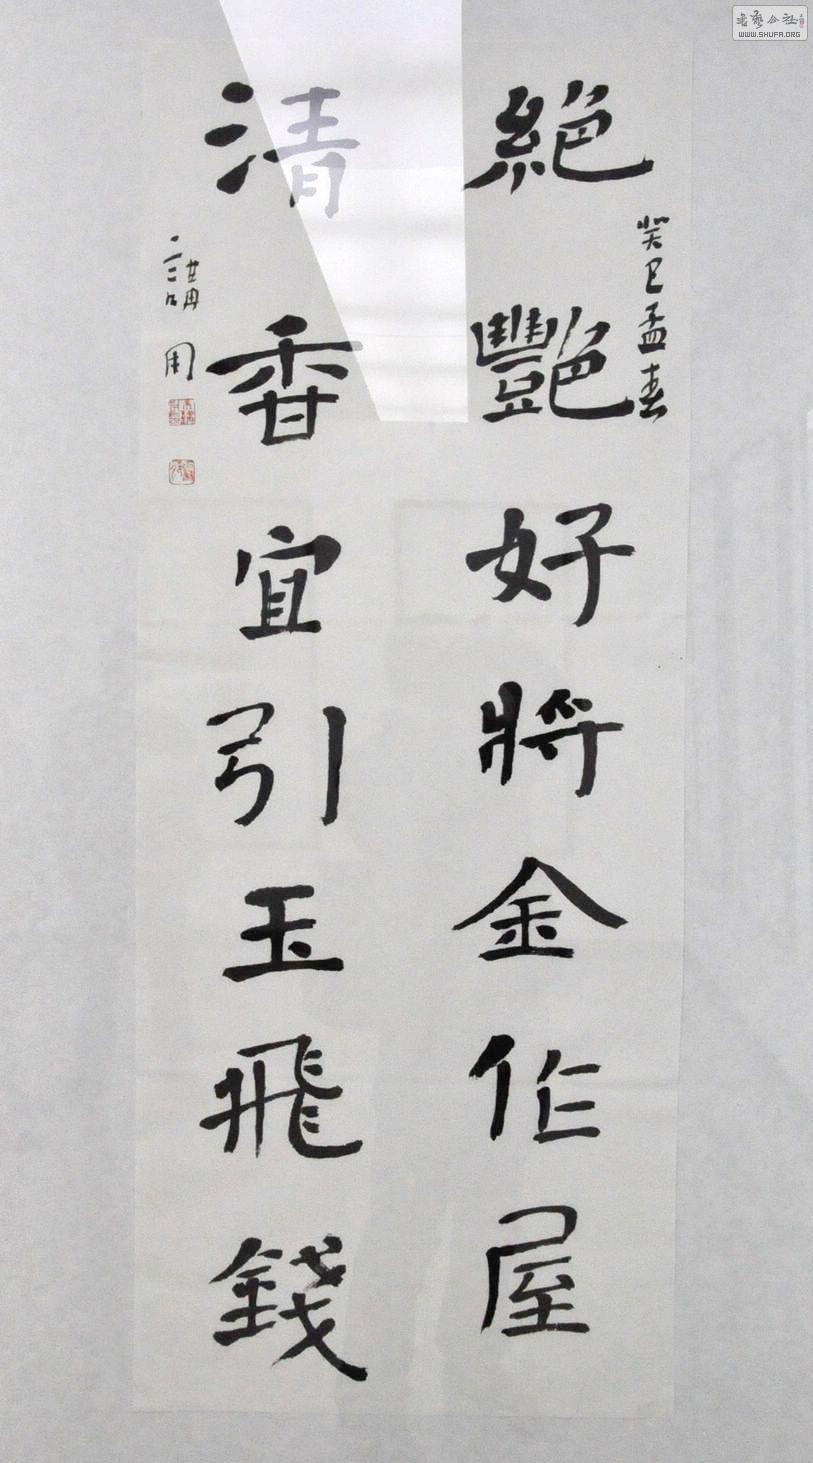 絕艷好將金作屋
癸巳孟春
清香宜引玉飛錢
講周
WWW.SHUFA.ORG